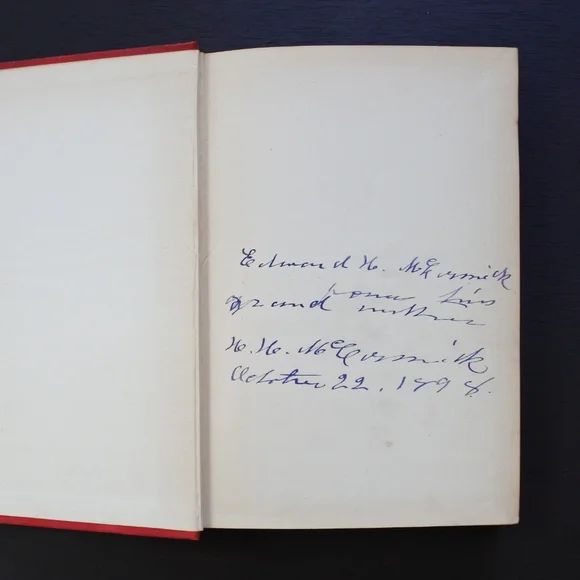 Edward H. McCormick
from his
grand mother
H. H. McCormick
October 22, 1898.